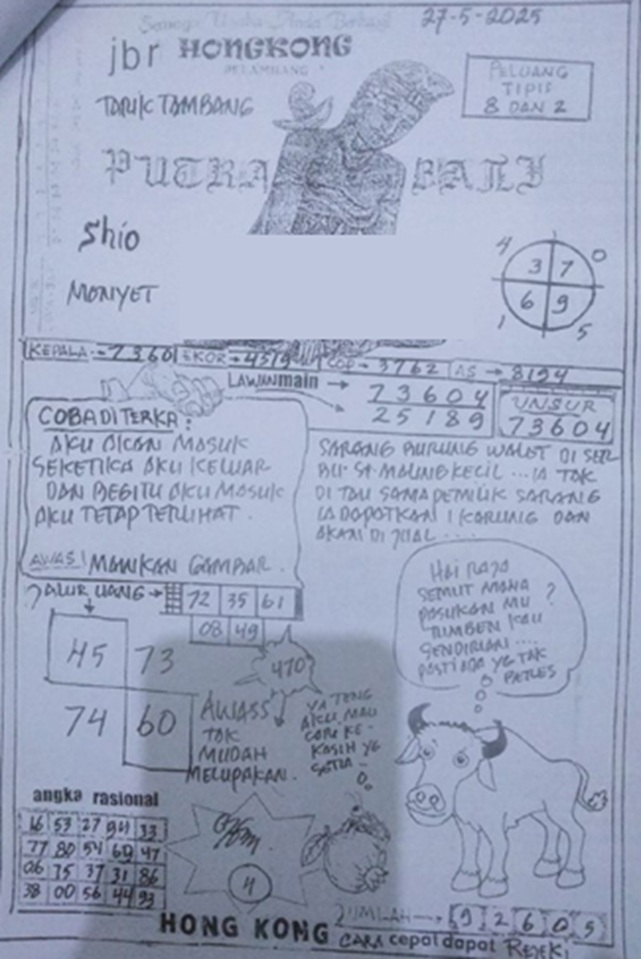 27-5-2025
jbr HONGKONG
PELAMBANG
TARIK TAMBANG
PELUANG
TIPIS
8 DAN 2
PUTRA BALI
Shio
MONYET
4 0
3 7
6 9
1 5
KEPALA → 7360 EKOR → 4519 COP → 3762 AS → 8194
LAWAN main → 73604
25189
UNSUR
73604
COBA DI TERKA:
AKU AKAN MASUK
SEKETIKA AKU KELUAR
DAN BEGITU AKU MASUK
AKU TETAP TERLIHAT.
AWAS! MAINKAN GAMBAR.
SARANG BURUNG WALET DI SER
BU SI MALING KECIL ... IA TAK
DI TAU SAMA PEMILIK SARANG
IA DAPATKAN 1 KARUNG DAN
AKAN DI JUAL ....
JALUR UANG → 72 35 61
08 49
45 73
74 60
470
AWASS
TAK
MUDAH
MELUPAKAN.
YA TENG
AKU MAU
CARI KE-
KASIH YG
SETIA -
HAI RAJA
SEMUT MANA
PASUKAN MU ?
TUMBEN KAU
SENDIRIAN ....
PASTI ADA YG TAK
BERES
angka rasional
16 53 27 94 33
77 80 54 69 47
06 75 37 31 86
38 00 56 44 93
4
JUMLAH → 9 2 6 0 5
HONG KONG CARA cepat dapat REJEKI